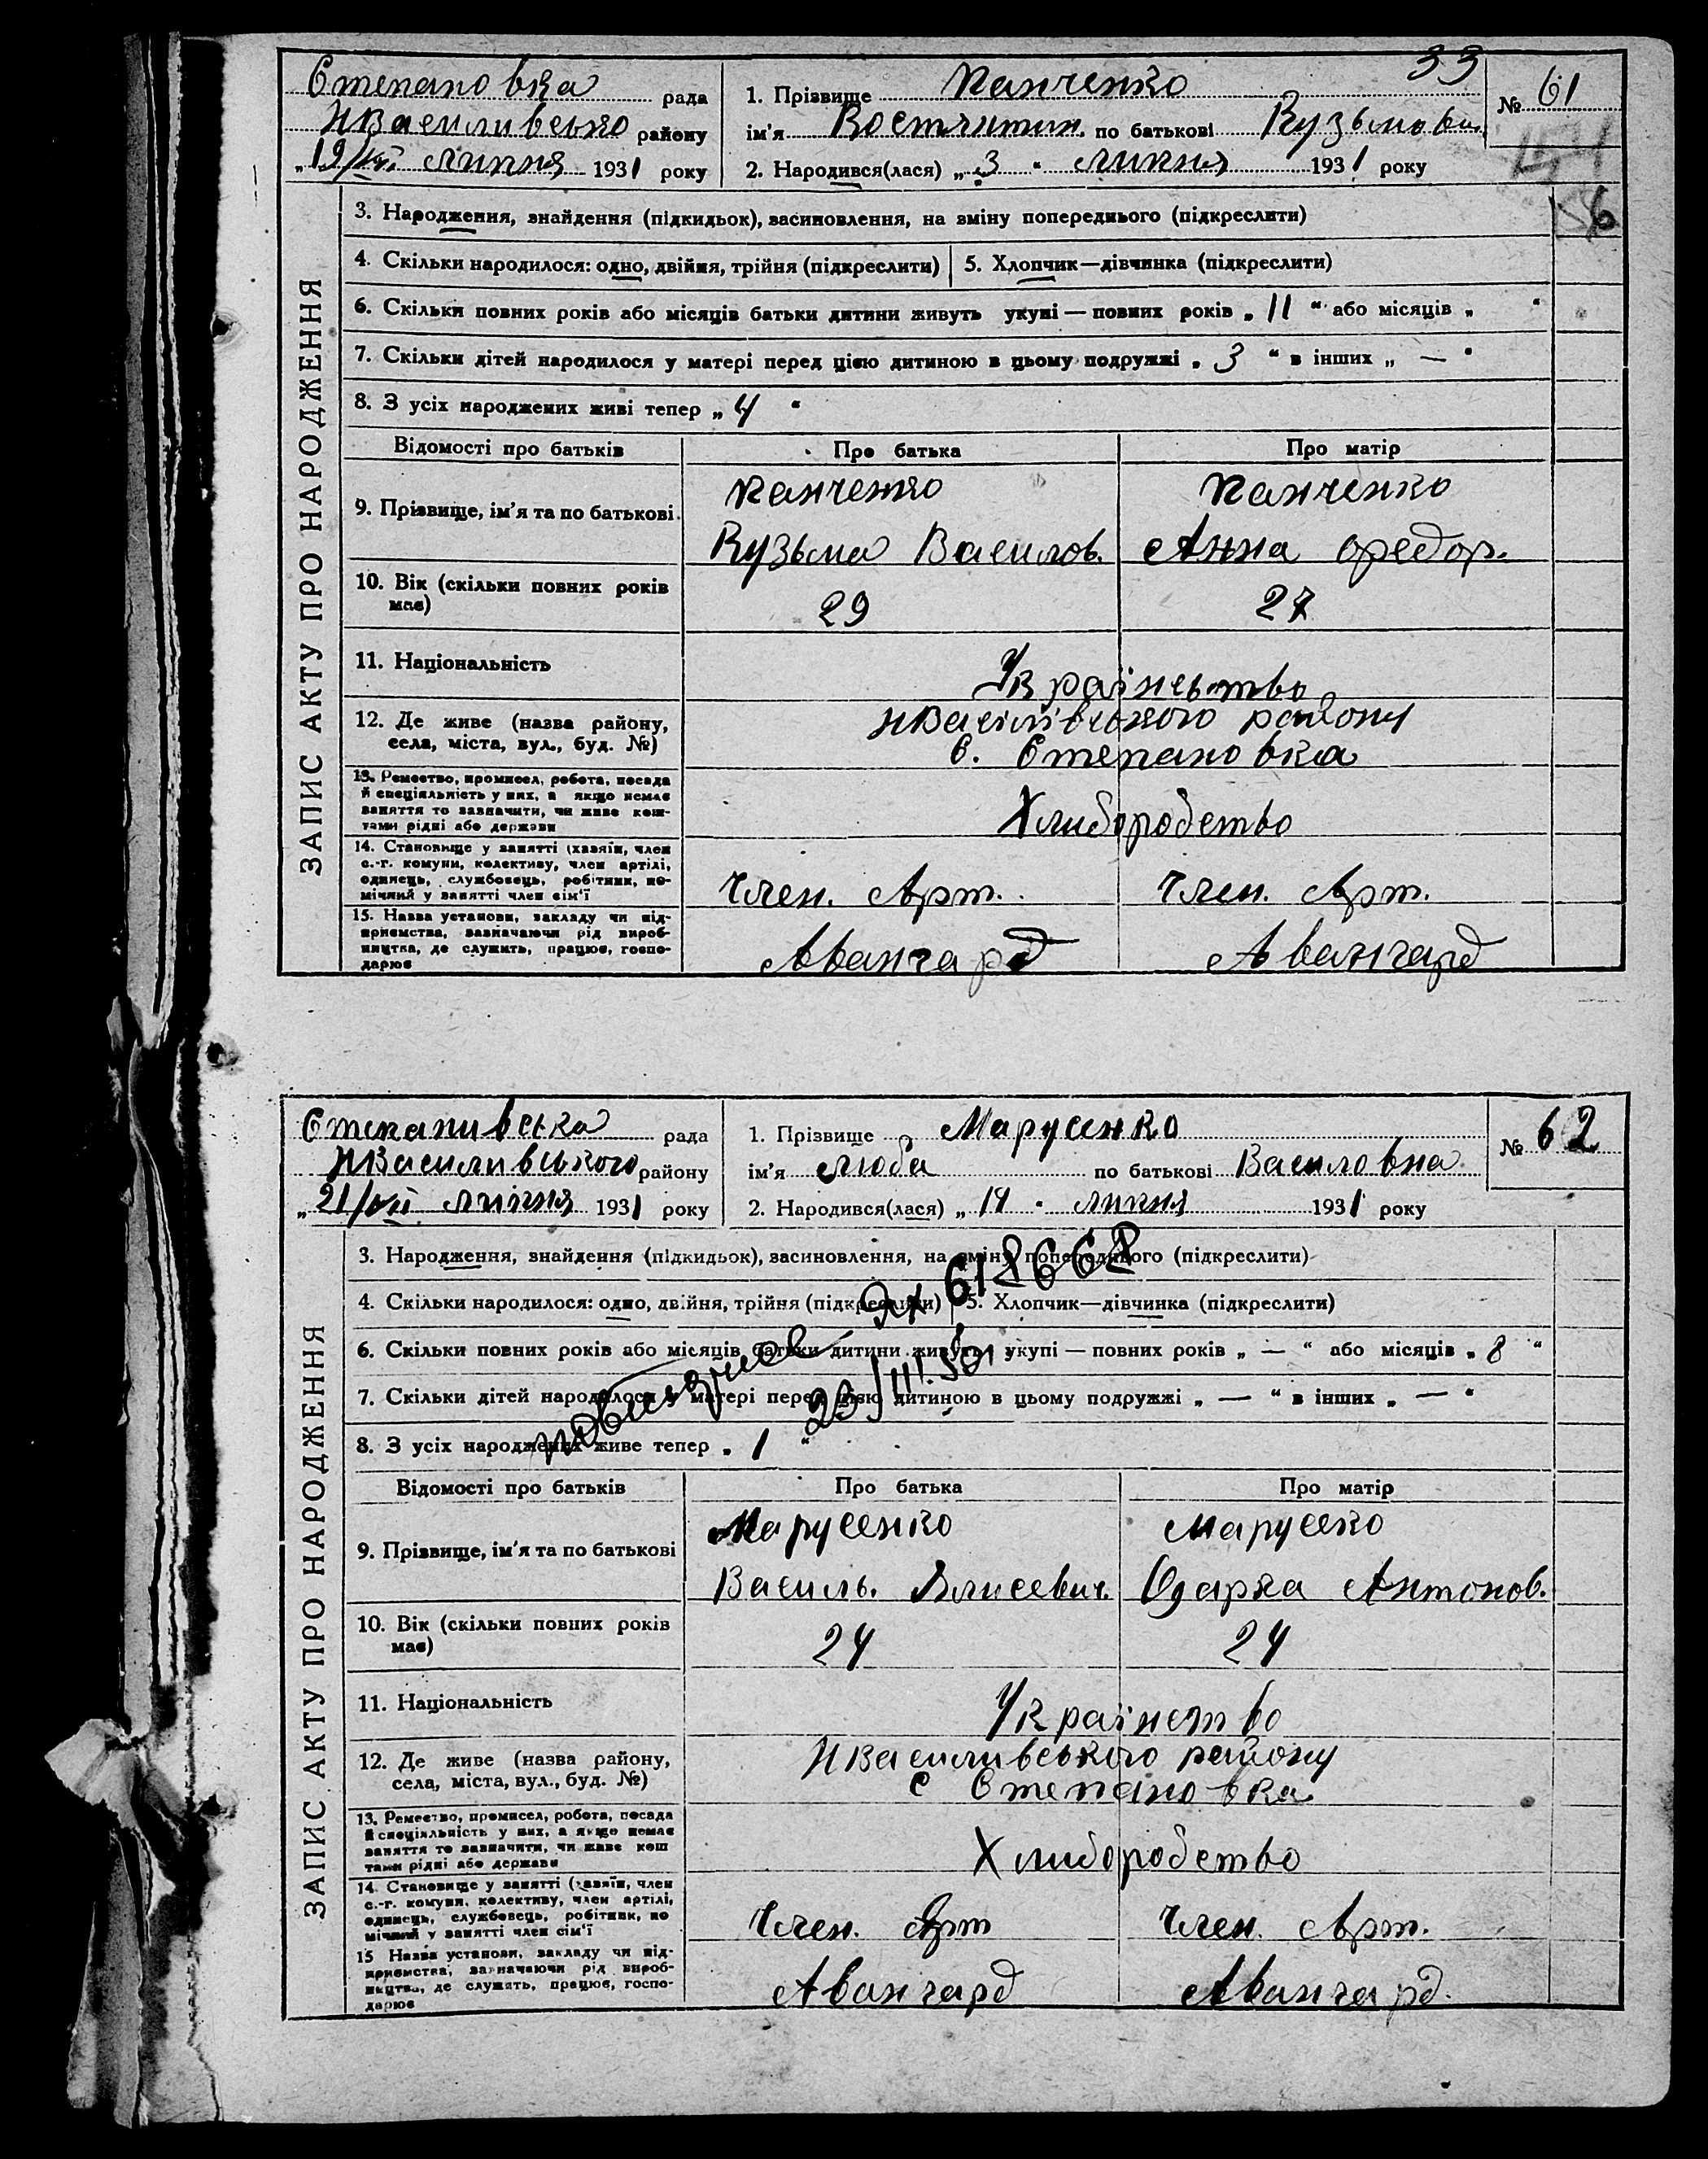 33
Степановка рада
НВасиливсько району
„19/VII липня 1931 року
1. Прізвище Панченко
ім'я Костянтин по батькові Кузьмови
2. Народився(лася) „3“ липня 1931 року
№ 61
56
ЗАПИС АКТУ ПРО НАРОДЖЕННЯ
3. Народження, знайдення (підкидьок), засиновлення, на зміну попереднього (підкреслити)
4. Скільки народилося: одно, двійня, трійня (підкреслити) 5. Хлопчик—дівчинка (підкреслити)
6. Скільки повних років або місяців батьки дитини живуть укупі — повних років „11“ або місяців „ “
7. Скільки дітей народилося у матері перед цією дитиною в цьому подружжі „3“ в інших „—“
8. З усіх народжених живі тепер „4“
Відомості про батьків Про батька Про матір
9. Прізвище, ім'я та по батькові
Панченко Панченко
Кузьма Василов. Анна Федор.
10. Вік (скільки повних років
має)
29 27
11. Національність
Українство
12. Де живе (назва району,
села, міста, вул., буд. №)
НВасилівського району
с. Степановка
13. Ремество, промисел, робота, посада
й спеціяльність у них, а якщо немає
заняття то зазначити, чи живе кош-
тами рідні або держави
Хлиборобство
14. Становище у занятті (хазяїн, член
с.-г. комуни, колективу, член артілі,
одинець, службовець, робітник, по-
мічний у занятті член сім'ї
Член. Арт. Член. Арт.
15. Назва установи, закладу чи під-
приємства, зазначаючи рід вироб-
ництва, де служить, працює, госпо-
дарює
Авангард Авангард
Степанивська рада
НВасиливського району
„21/VII липня 1931 року
1. Прізвище Марусенко
ім'я Люба по батькові Василовна
2. Народився(лася) „14“ липня 1931 року
№ 62
ЗАПИС АКТУ ПРО НАРОДЖЕННЯ
3. Народження, знайдення (підкидьок), засиновлення, на зміну попереднього (підкреслити)
4. Скільки народилося: одно, двійня, трійня (підкреслити) 5. Хлопчик—дівчинка (підкреслити)
6. Скільки повних років або місяців батьки дитини живуть укупі — повних років „—“ або місяців „8“
7. Скільки дітей народилося у матері перед цією дитиною в цьому подружжі „—“ в інших „—“
8. З усіх народжених живе тепер „1“
Відомості про батьків Про батька Про матір
9. Прізвище, ім'я та по батькові
Марусенко Марусеко
Василь. Елисевич. Одарка Антонов.
10. Вік (скільки повних років
має)
24 24
11. Національність
Українство
12. Де живе (назва району,
села, міста, вул., буд. №)
НВасиливського району
с Степановка
13. Ремество, промисел, робота, посада
й спеціяльність у них, а якщо немає
заняття то зазначити, чи живе кош
тами рідні або держави
Хлиборобство
14. Становище у занятті (хазяїн, член
с.-г. комуни, колективу, член артілі,
одинець, службовець, робітник, по
мічний у занятті член сім'ї
Член. Арт Член. Арт.
15 Назва установи, закладу чи під-
приємства, зазначаючи рід вироб-
ництва, де служить, працює, госпо-
дарює
Авангард Авангард.